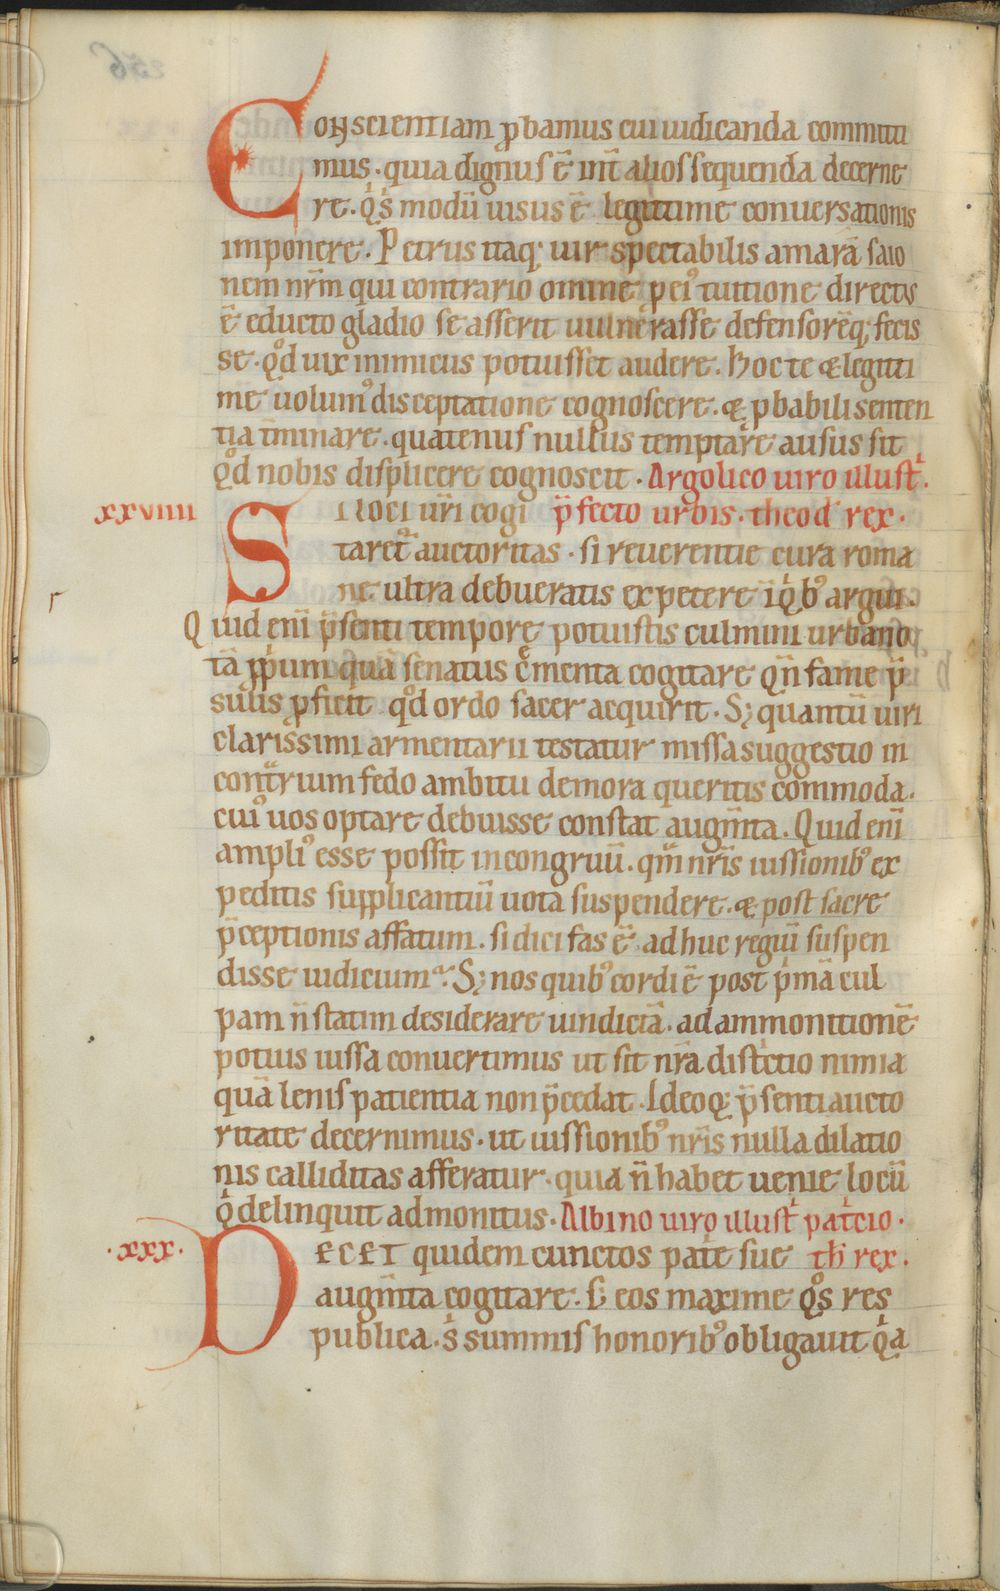 Conscientiam ꝓbamus cui iudicanda committi
mus. quia dignus ē int̄ alios sequenda decerne
re. q̇s modū uisus ē legittime conuersationis
imponere. Petrus itaq; uir spectabilis amarā saio
nem nr̄m qui contrario omine p ei᷒ tuitione directus
ē educto gladio se asserit uulnerasse defensorēq; fecis
se. qd̊ uix inimicus potuisset audere. Hoc te & legiti
me uolum᷒ disceptatione cognoscere. & ꝓbabili senten
tia t̄minare. quatenus nullus temptare ausus sit
qd̊ nobis displicere cognoscit. Argolico uiro illust̄.
xxviiii Si loci ur̄i cogi p̄fecto urbis. theod rex.
taret᷑ auctoritas. si reuerentie cura roma
ne ultra debueratis expetere iq̇b᷒ argui.
Quid enī p̄senti tempore potuistis culmini urbano
tā ꝓprium quā senatus c̄menta cogitare qn̄ fame p̄
sulis ꝓficit qd̊ ordo sacer acquirit. Sꝫ quantū uiri
clarissimi armentarii testatur missa suggestio in
contrium fedo ambitu de mora queritis commoda.
cui᷒ uos optare debuisse constat augm̄ta. Quid enī
ampli᷒ esse possit incongruū. qm̄ nr̄is iussionib᷒ ex
peditis supplicantiū uota suspendere. & post sacre
p̄ceptionis affatum. si dici fas ē adhuc reguū suspen
disse iudicium? Sꝫ nos quib᷒ cordi ē post ṗmā cul
pam n̄ statim desiderare uindictā. ad ammonitionē
potius iussa conuertimus ut sit nr̄a distctio nimia
quā lenis patientia non p̄cedat. Ideoq; p̄senti aucto
ritate decernimus. ut iussionib᷒ nr̄is nulla dilatio
nis calliditas afferatur. quia n̄ habet uenie locū
q̇ delinquit admonitus. Albino uiro illust̄ paṫcio.
.xxx. Decet quidem cunctos pat̄e sue th̄ rex.
augm̄ta cogitare. s; eos maxime qo̊s res
publica. ṡ summis honorib᷒ obligauit q̇a